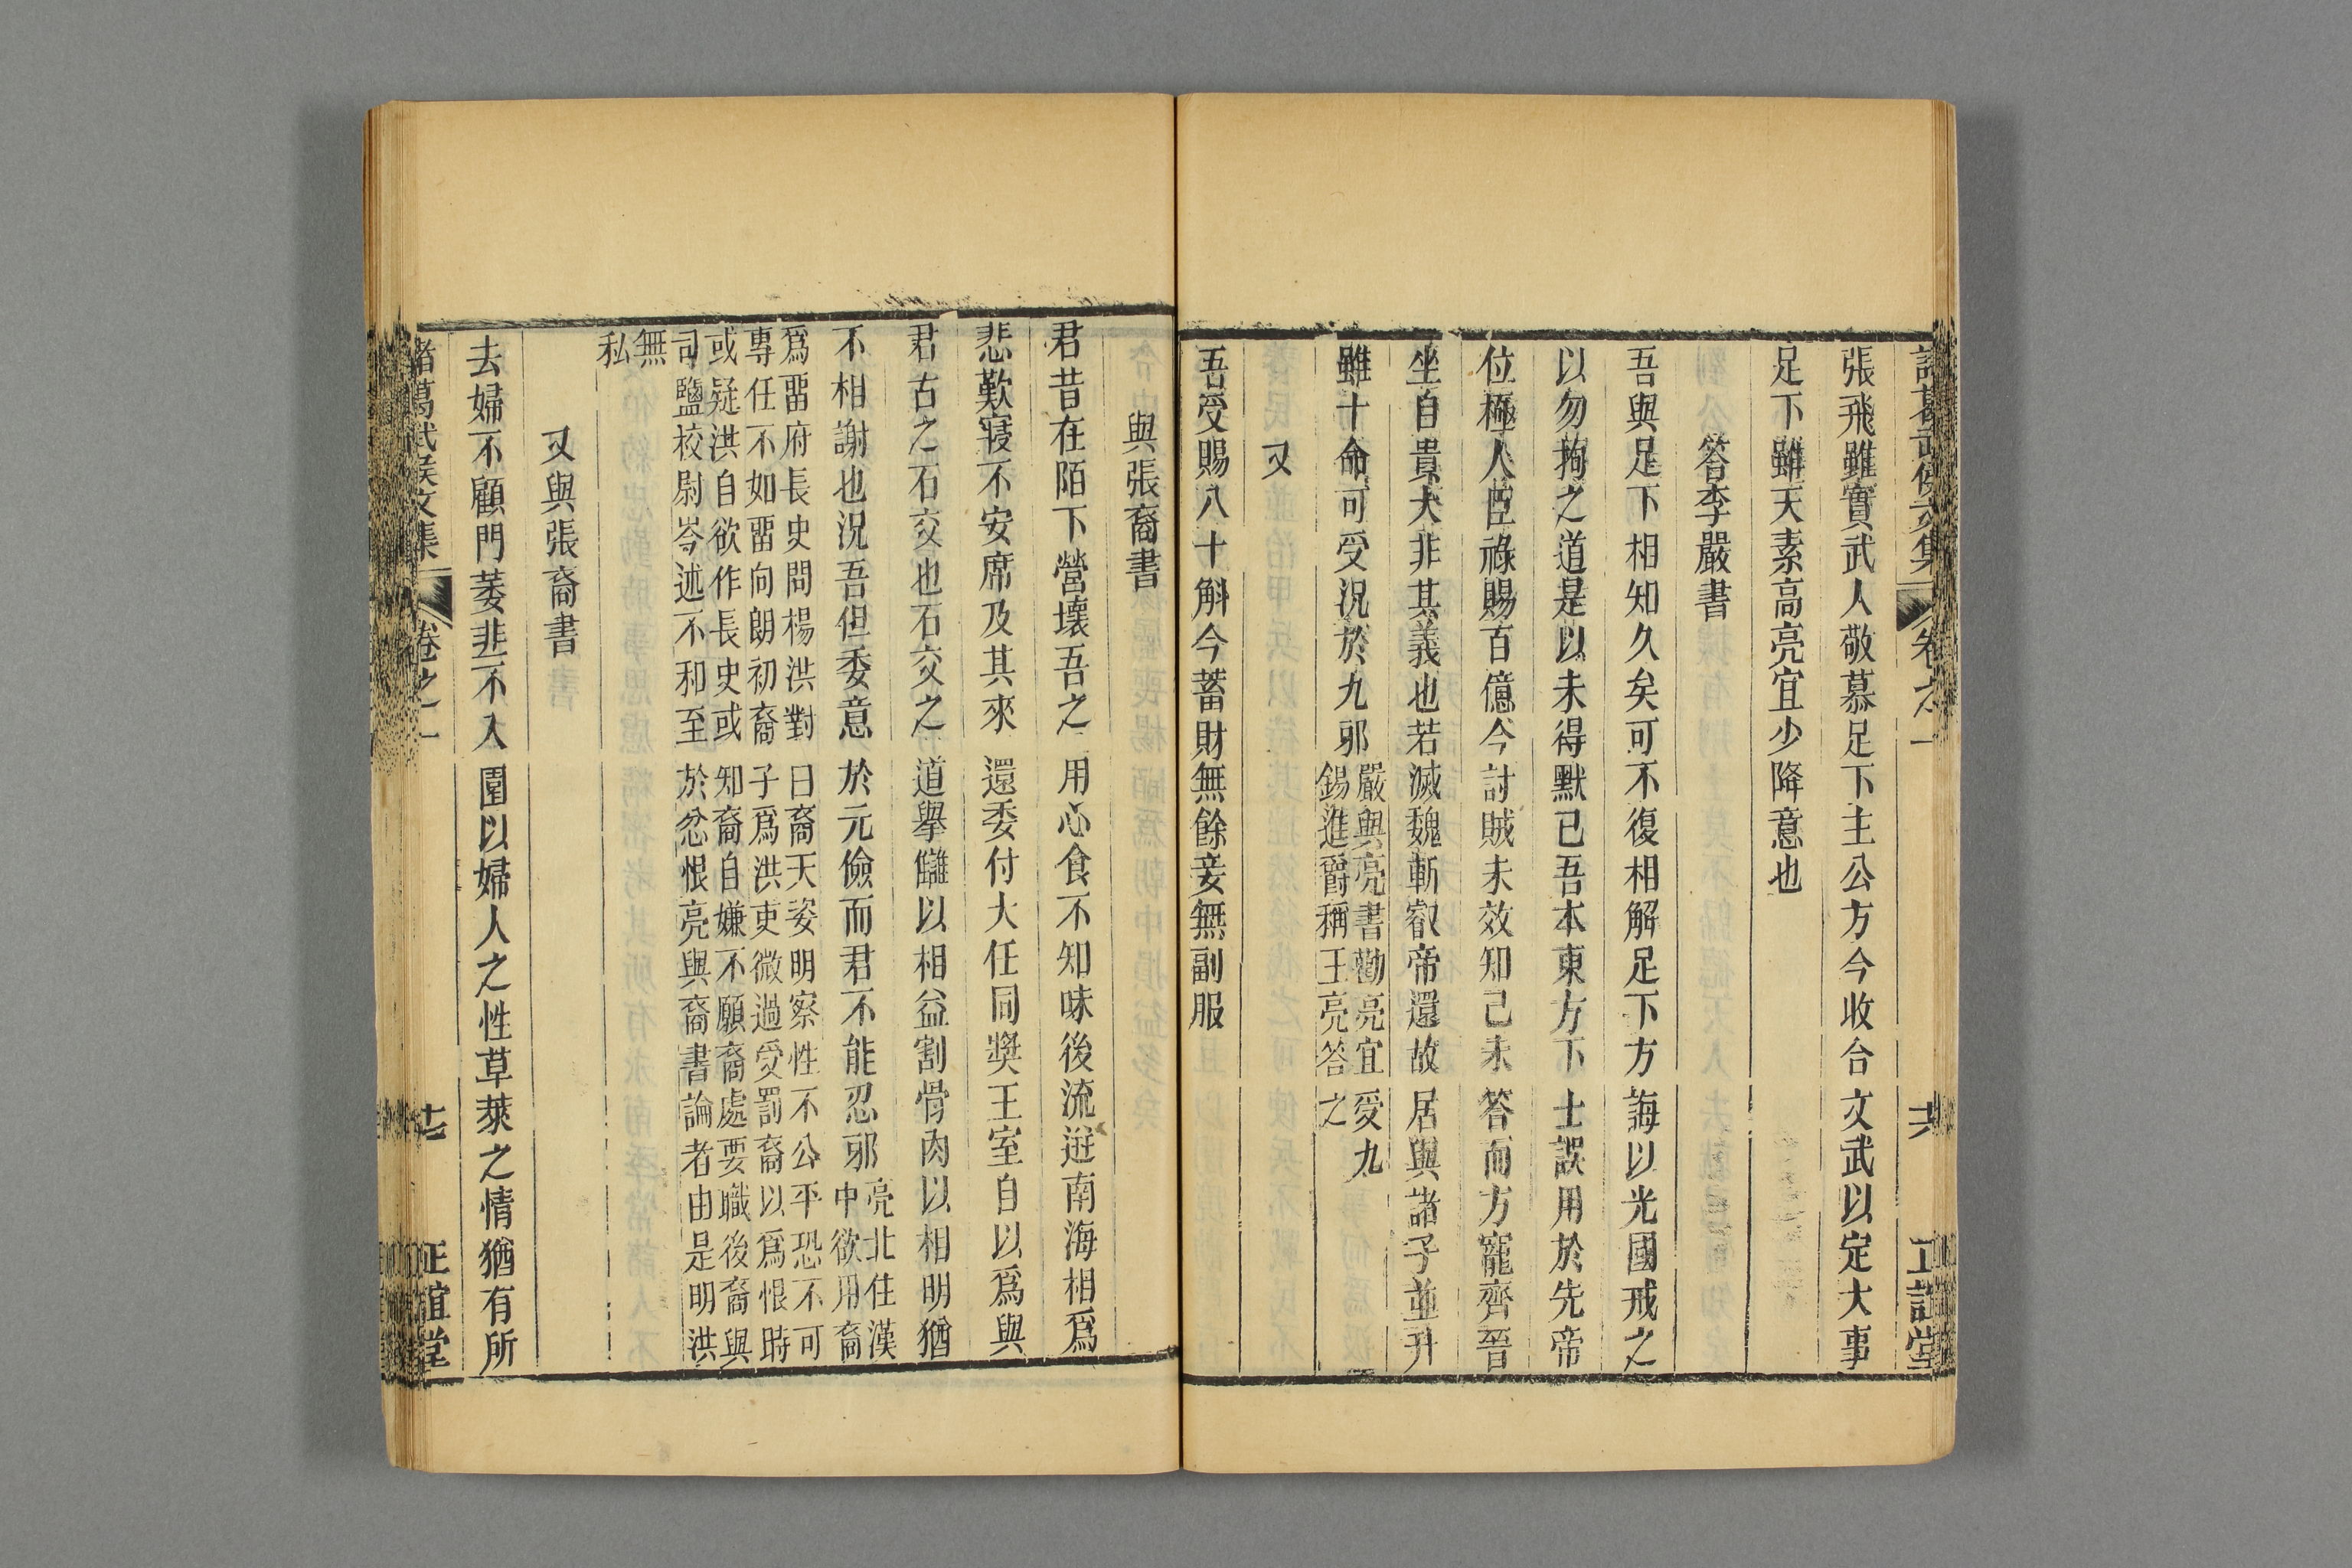 諸葛武侯文集 卷之一 六 正誼堂
張飛雖實武人敬慕足下主公方今收合文武以定大事
足下雖天素高亮宜少降意也
答李嚴書
吾與足下相知久矣可不復相解足下方誨以光國戒之
以勿拘之道是以未得默已吾本東方下士誤用於先帝
位極人臣祿賜百億今討賊未效知己未答而方寵齊晉
坐自貴大非其義也若滅魏斬叡帝還故居與諸子並升
雖十命可受況於九邪
嚴與亮書勸亮宜受九
錫進爵稱王亮答之
又
吾受賜八十斛今蓄財無餘妾無副服
與張裔書
君昔在陌下營壞吾之用心食不知味後流迸南海相爲
悲歎寢不安席及其來還委付大任同獎王室自以爲與
君古之石交也石交之道舉讎以相益割骨肉以相明猶
不相謝也況吾但委意於元儉而君不能忍邪
亮北住漢
中欲用裔
爲畱府長史問楊洪對曰裔天姿明察性不公平恐不可
專任不如畱向朗初裔子爲洪吏微過受罰裔以爲恨時
或疑洪自欲作長史或知裔自嫌不願裔處要職後裔與
司鹽校尉岑述不和至於忿恨亮與裔書論者由是明洪
無
私
又與張裔書
去婦不顧門萎韭不入園以婦人之性草萊之情猶有所
諸葛武侯文集 卷之一 七 正誼堂